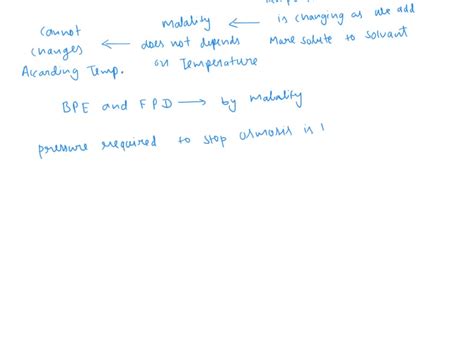 Molality ← is changing as we add
cannot changes ← does not depends More solute to solvant
Aicarding Temp. on Temperature
BPE and FPD → by Molality
pressure required to stop osmosis is